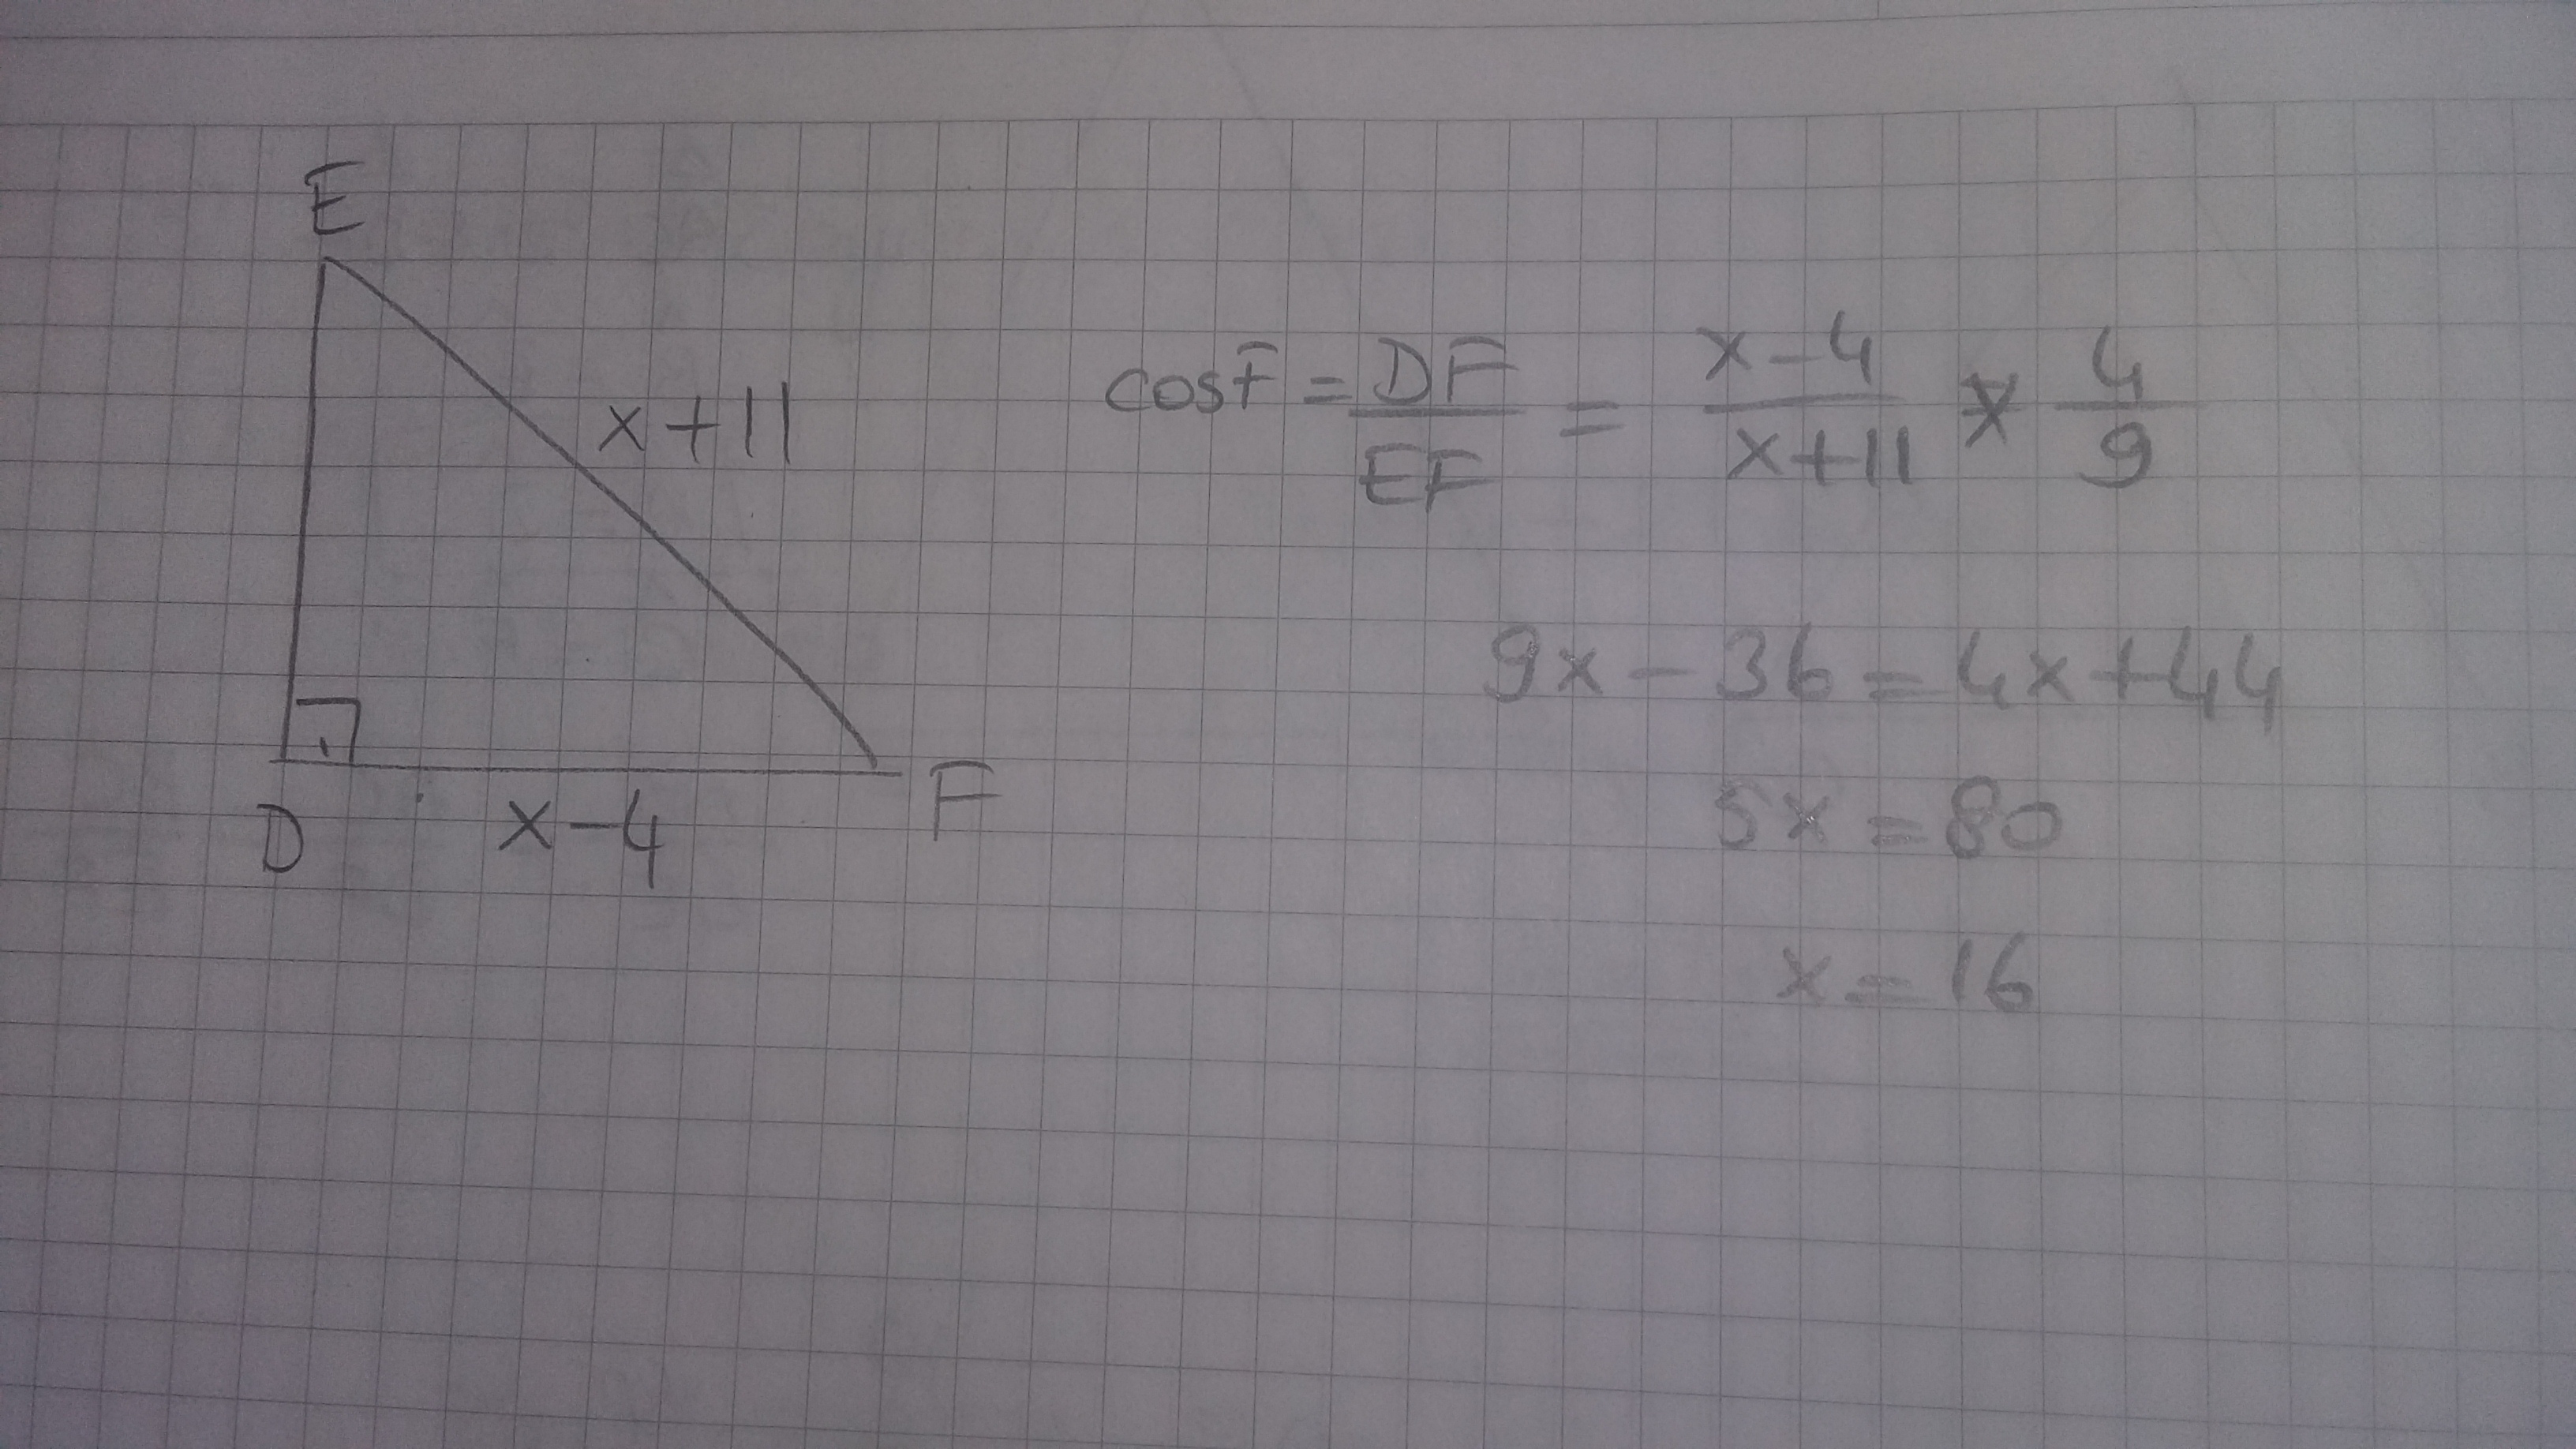 E
x+11
D x-4 F
cosF = DF/EF = x-4/x+11 × 4/9
9x - 36 = 4x+44
5x = 80
x = 16